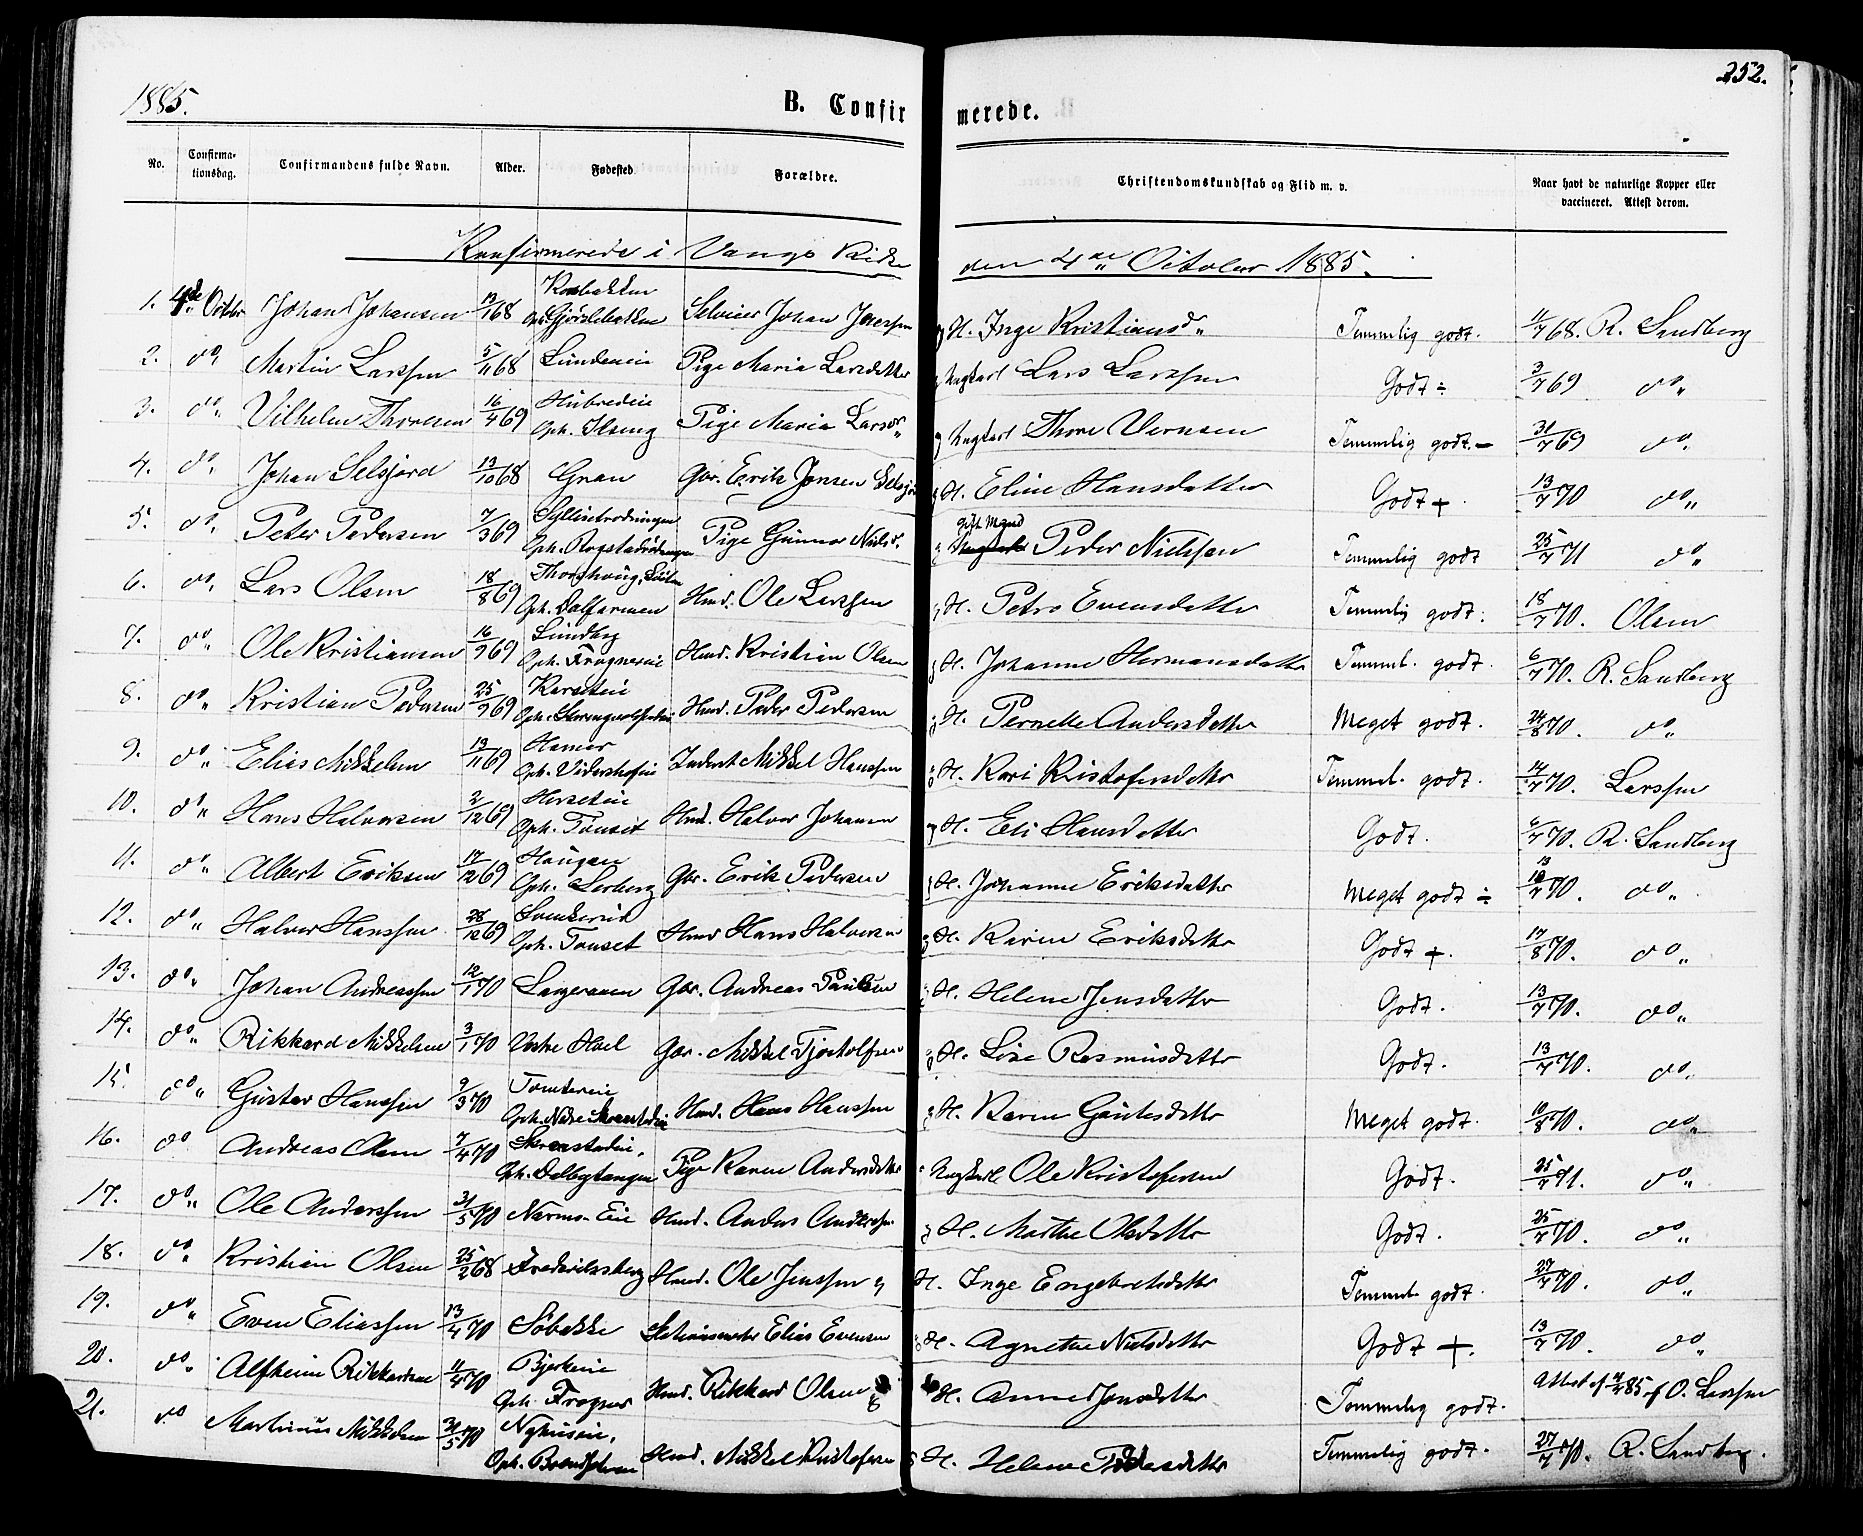 1885.
252.
B. Confirmerede.
No.
Confirma-
tionsdag.
Confirmandens fulde Navn.
Alder.
Fødested
Forældre.
Christendomskundskab og Flid m. v.
Naar havt de naturlige Kopper eller
vaccineret. Attest derom.
Konfirmerede i Vangs Kirke den 4de October 1885.
1. 4de Octbr Johan Johansen 13/1 68 Selveier Johan H. Inge Kristiansd. Temmelig godt. 11/7 68. R. Sandberg
2. do Martin Larssen 5/11 68 Lundeeie Pige Maria Larsdatter Ungkarl Lars Larssen Godt ÷ 3/7 69 do
3. do Vilhelm Thoresen 16/4 69 Hubredeie
Oph. Ilseng Pige Maria Larsd. Ungkarl Thore Temmelig godt.- 31/7 69 do
4. do Johan Selsjord 13/10 68 Gran Gbr. Erik Jonsen H. Eline Hansdatter Godt + 13/7 70 do
5. do Peter Pedersen 7/3 69
Oph. Pige Gunnor Nielsd. gift Mand Peder Nielssen Temmelig godt 25/7 71 do
6. do Lars Olsen 18/8 69
Oph. Hmd. Ole Larssen H. Petra Evensdatter Temmelig godt. 18/7 70. Olsen
7. do Ole Kristiansen 16/9 69 Lundberg
Oph. Frognereie Hmd. Kristian Olsen H. Johanne Hermansdatter Temmel. godt. 6/7 70. R. Sandberg
8. do Kristian Pedersen 25/9 69
Oph. Hmd. Peder Pedersen H. Pernelle Andersdatter Meget godt. 24/8 70. do
9. do Elias Mikkelsen 13/11 69 Hamar
Oph. Vidershofeie Inderst Mikkel Hanssen H. Kari Kristofersdatter Temmel. godt. 14/7 70. Larssen
10. do Hans Halvorsen 2/12 69
Oph. Tonset Hmd. Halvor Johansen H. Eli Hansdatter Godt. 6/7 70. R. Sandberg
11. do Albert Eriksen 17/12 69 Haugen
Oph. Gbr. Erik Pedersen H. Johanne Eriksdatter Meget godt ÷ 13/7 70. do
12. do Halvor Hanssen 28/12 69
Oph. Tonset Hmd Hans Halvorsen H. Karen Eriksdatter Godt +. 17/8 70. do
13. do Johan Andreassen 12/1 70 Gbr. Andreas Paulsen H. Helene Jensdatter Godt. 13/7 70. do
14. do Rikkard Mikkelsen 3/1 70 Vestre Hoel Gbr. Mikkel Tjostolfsen H. Lise Rasmusdatter Godt. 13/7 70. do
15. do Gustav Hanssen 9/3 70 Tomtereie
Oph. Nedre Hmd. Hans Hanssen H. Karen Gautesdatter Meget godt. 10/8 70. do
16. do Andreas Olsen 7/4 70
Oph. Dælbytangen Pige Karen Andersdatter Ungkarl Ole Kristofersen Godt. 25/7 71. do
17. do Ole Anderssen 31/5 70 Nærmo-Eie Hmd. Anders Anderssen H. Marthe Olsdatter Godt. 25/7 70. do
18. do Kristian Olsen 25/2 68 Frederiksberg Hmd. Ole Jenssen og H. Inge Engebretsdatter Temmel. godt. 27/7 70. do
19. do Even Eliassen 13/4 70 Søbakke Elias Evensen H. Agnethe Nielsdatter Godt +. 13/7 70. do
20. do Alfheim Rikkardsen 11/4 70 Bjerkeeie
Oph. Frogner Hmd. Rikkard Olsen og H. Anne Temmelig godt. Attest af 85 af O. Larssen
21. do Martinius Mikkelsen 31/5 70 Nyhuseie,
Oph. Hmd. Mikkel Kristofersen H. Helene Pedersdatter Temmelig godt. 27/7 70. R. Sandberg.